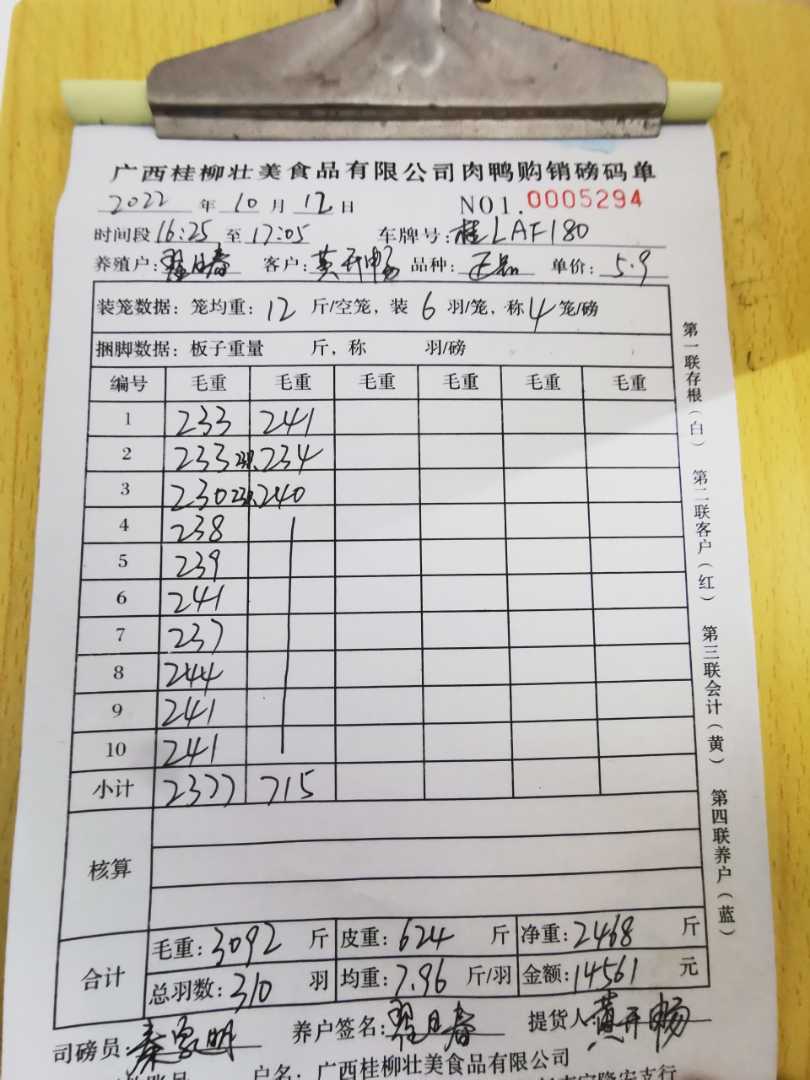 广西桂柳壮美食品有限公司肉鸭购销磅码单
2022 年 10 月 12 日 NO1.0005294
时间段 16:25 至 17:05 车牌号: 桂LAF180
养殖户: 春 客户: 黄开畅 品种: 单价: 5.9
装笼数据: 笼均重: 12 斤/空笼, 装 6 羽/笼, 称 4 笼/磅
捆脚数据: 板子重量 斤, 称 羽/磅
编号 毛重 毛重 毛重 毛重 毛重 毛重
1 233 241
2 233 234
3 230 240
4 238
5 239
6 241
7 237
8 244
9 241
10 241
小计 2377 715
核算
合计
毛重: 3092 斤 皮重: 624 斤 净重: 2468 斤
总羽数: 310 羽 均重: 7.96 斤/羽 金额: 14561 元
司磅员: 养户签名: 春 提货人 黄开畅
户名: 广西桂柳壮美食品有限公司
第一联存根(白) 第二联客户(红) 第三联会计(黄) 第四联养户(蓝)